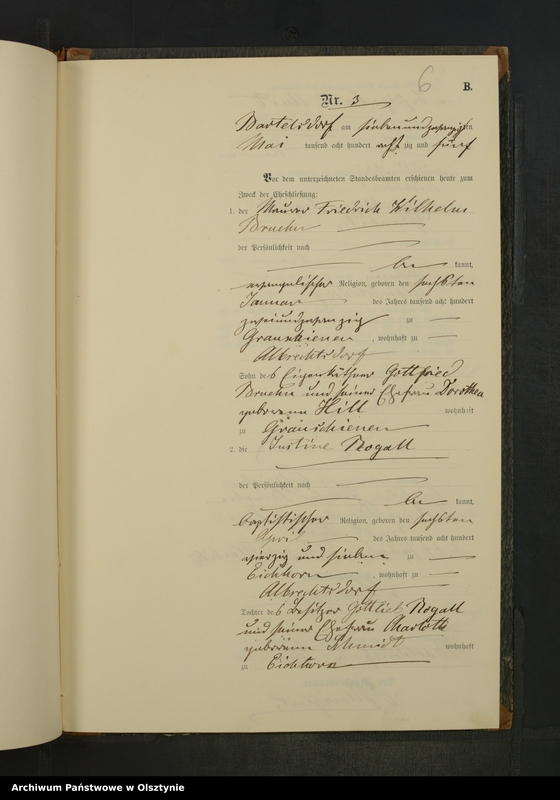 6
B.
Nr. 3
Bartelsdorf am siebenundzwanzigsten
Mai tausend acht hundert acht zig und fünf
Vor dem unterzeichneten Standesbeamten erschienen heute zum
Zweck der Eheschließung:
1. der Maurer Friedrich Wilhelm
Bruehn
der Persönlichkeit nach
be kannt,
evangelischer Religion, geboren den sechsten
Januar des Jahres tausend acht hundert
zweiundzwanzig zu
, wohnhaft zu
Albrechtsdorf
Sohn des Eigenkäthner Gottfried
Bruehn und seiner Ehefrau Dorothea
geborene Hill wohnhaft
zu
2. die Justine Rogall
der Persönlichkeit nach
be kannt,
baptistischer Religion, geboren den sechsten
April des Jahres tausend acht hundert
vierzig und sieben zu
Eichhorn , wohnhaft zu
Albrechtsdorf
Tochter des Besitzer Gottlieb Rogall
und seiner Ehefrau Charlotte
geborene Schmidt wohnhaft
zu Eichhorn
Archiwum Państwowe w Olsztynie